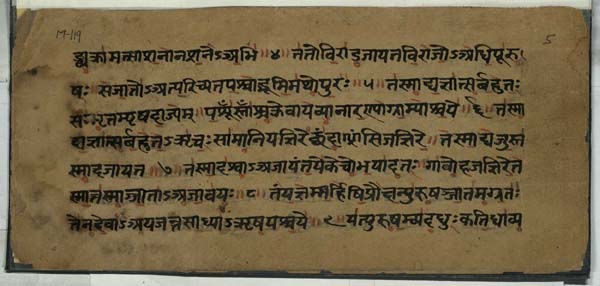 M-119
5
ङ्व्यक्रामत्साशनानशनेऽअभि ४ ततोविराडजायतविराजोऽअधिपूरु
षः सजातोऽअत्यरिच्यतपश्चाद्भूमिमथोपुरः ५ तस्माद्यज्ञात्सर्वहुतः
सम्भृतम्पृषदाज्यम् पशूँस्ताँश्चक्रेवायव्यानारण्याग्राम्याश्चये ६ तस्मा
द्यज्ञात्सर्वहुतऽऋचःसामानियज्ञिरे छंदाᳫंसिजज्ञिरे तस्माद्यजुस्त
स्मादजायत ७ तस्मादश्वाऽअजायंतयेकेचोभयादतः गावोहजज्ञिरेत
स्मात्तस्माज्जाताऽअजावयः ८ तंयज्ञम्बर्हिषिप्रौक्षन्पुरुषञ्जातमग्रतः
तेनदेवाऽअयजन्तसाध्याऽऋषयश्चये ९ यत्पुरुषम्व्यदधुःकतिधाव्य